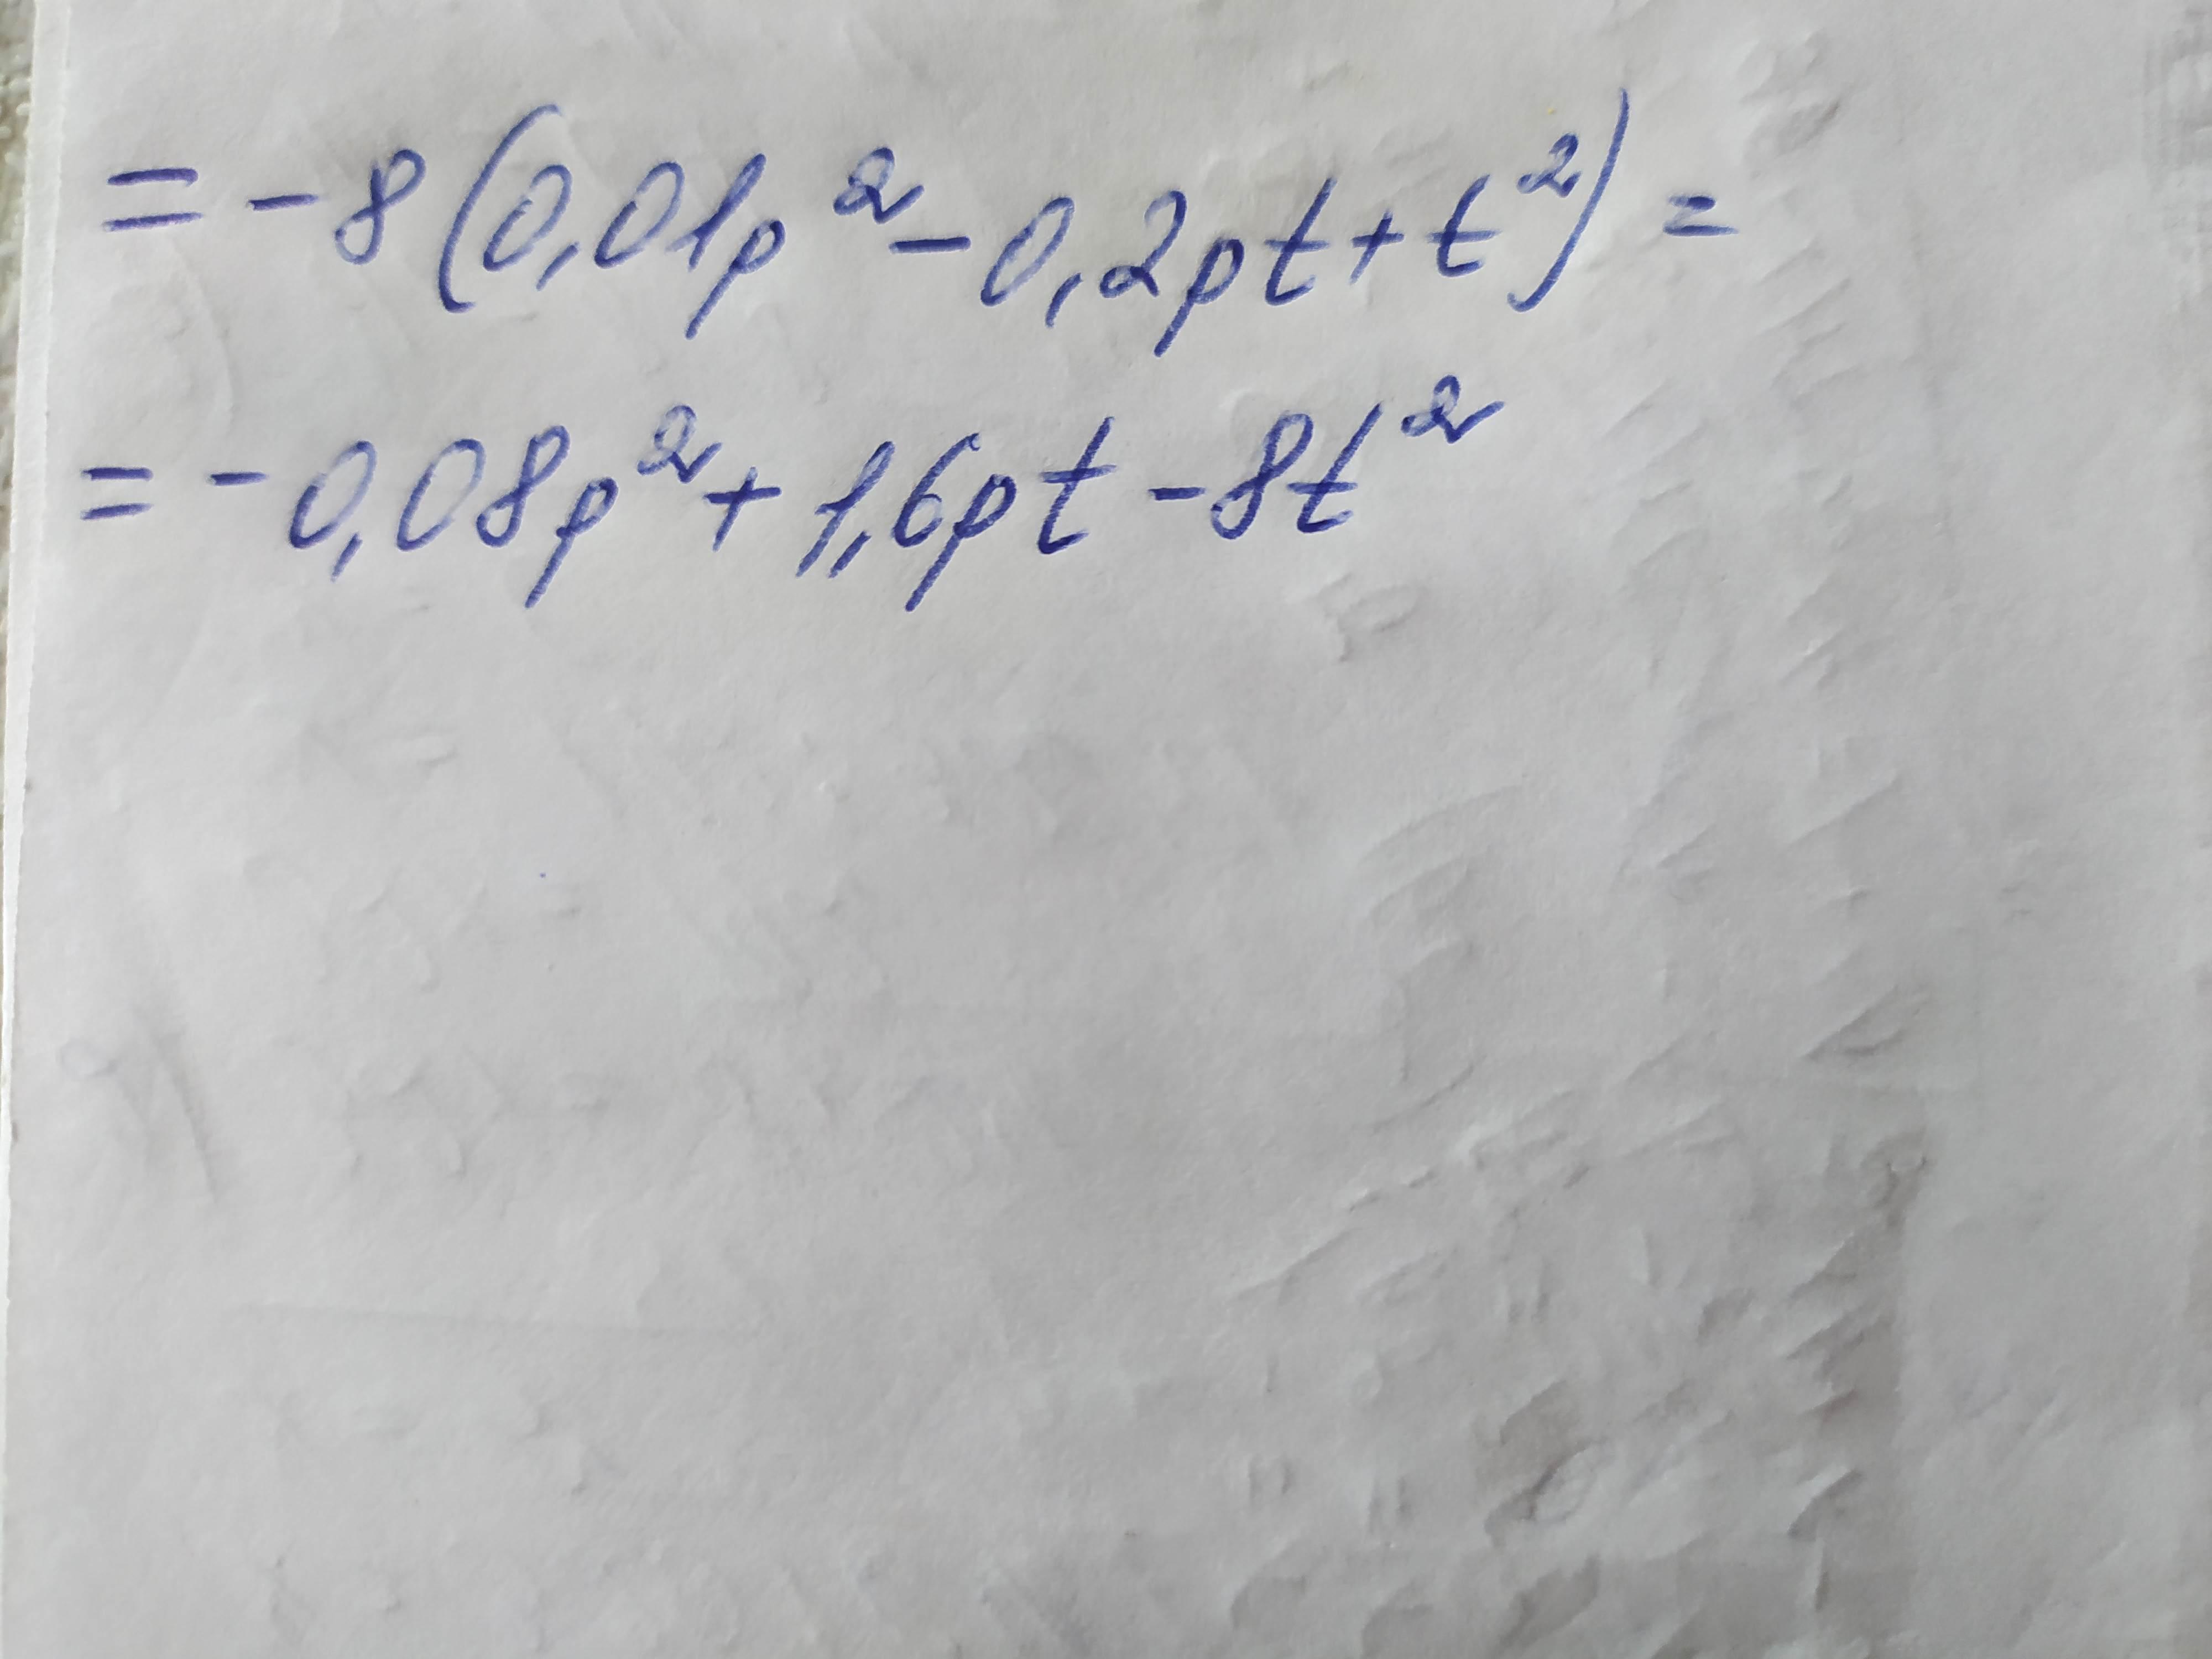 = -8(0,01p² - 0,2pt + t²) =
= -0,08p² + 1,6pt - 8t²